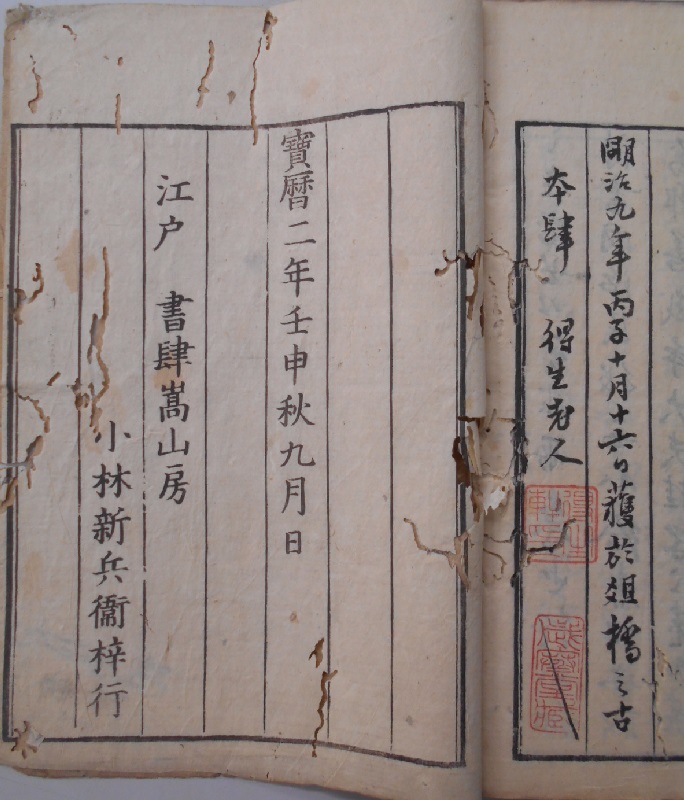 明治九年丙子十月十六日獲於俎橋之古
本肆　得生老人
寶曆二年壬申秋九月日
江戸　書肆嵩山房
小林新兵衞梓行